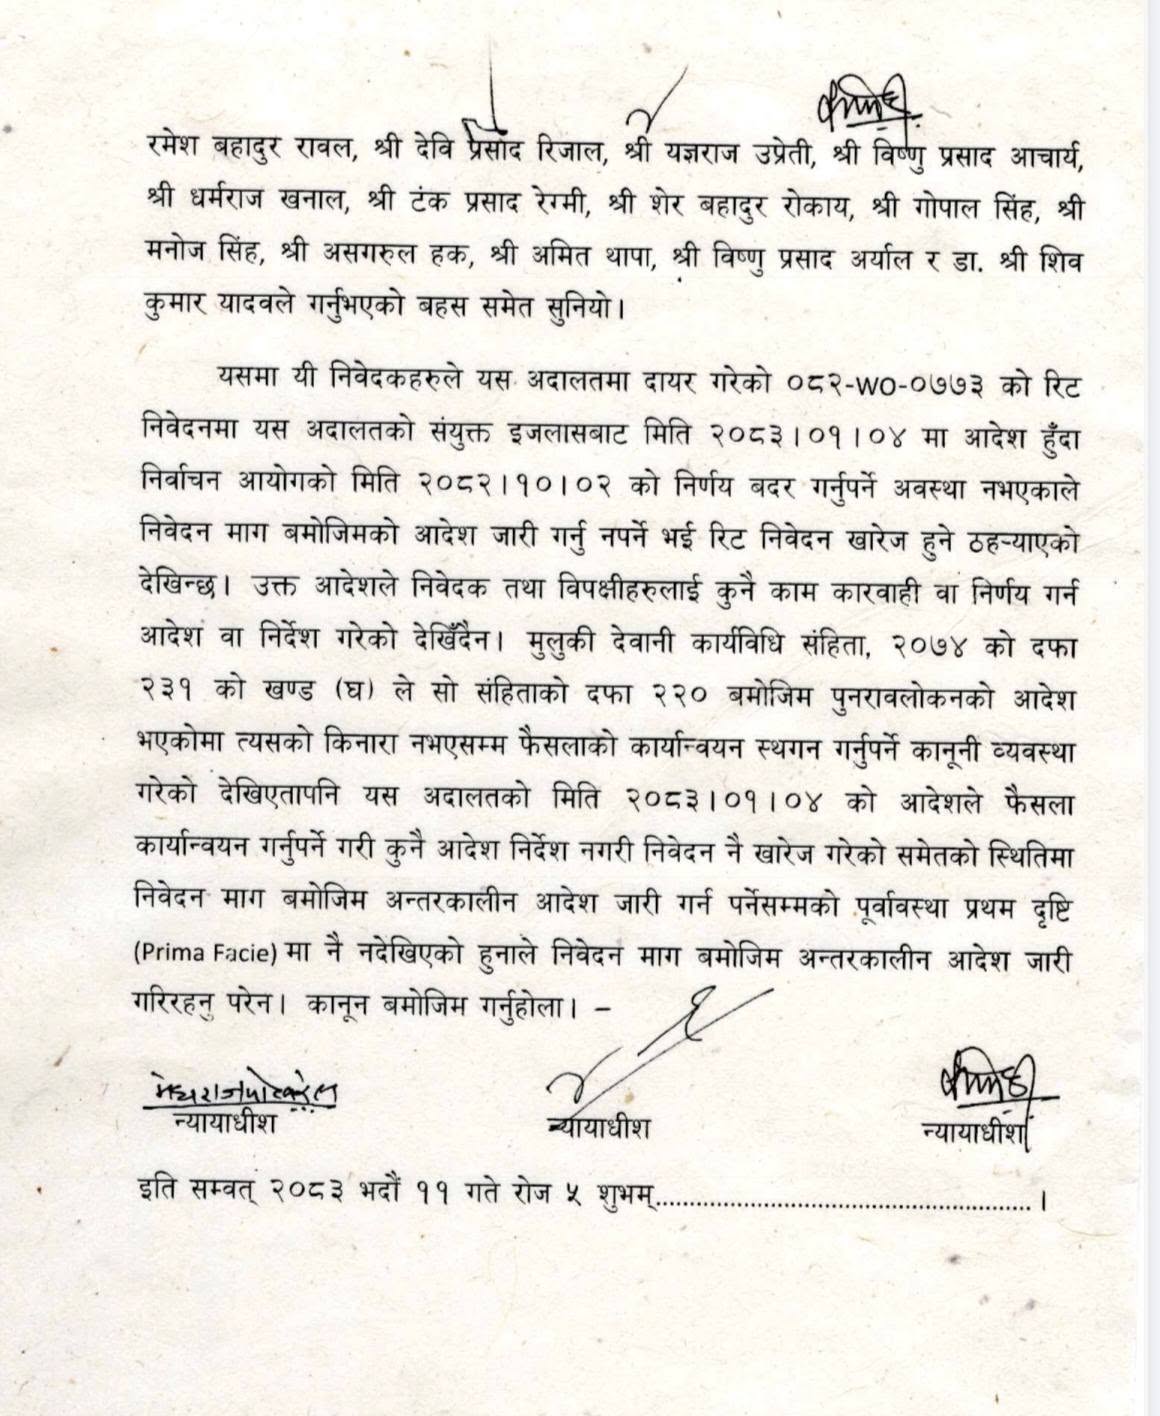 रमेश बहादुर रावल, श्री देवि प्रसाद रिजाल, श्री यज्ञराज उप्रेती, श्री विष्णु प्रसाद आचार्य,
श्री धर्मराज खनाल, श्री टंक प्रसाद रेग्मी, श्री शेर बहादुर रोकाय, श्री गोपाल सिंह, श्री
मनोज सिंह, श्री असगरुल हक, श्री अमित थापा, श्री विष्णु प्रसाद अर्याल र डा. श्री शिव
कुमार यादवले गर्नुभएको बहस समेत सुनियो।
यसमा यी निवेदकहरुले यस अदालतमा दायर गरेको ०८२-WO-०७७३ को रिट
निवेदनमा यस अदालतको संयुक्त इजलासबाट मिति २०८३।०१।०४ मा आदेश हुँदा
निर्वाचन आयोगको मिति २०८२।१०।०२ को निर्णय बदर गर्नुपर्ने अवस्था नभएकाले
निवेदन माग बमोजिमको आदेश जारी गर्नु नपर्ने भई रिट निवेदन खारेज हुने ठहर्‍याएको
देखिन्छ। उक्त आदेशले निवेदक तथा विपक्षीहरुलाई कुनै काम कारवाही वा निर्णय गर्न
आदेश वा निर्देश गरेको देखिँदैन। मुलुकी देवानी कार्यविधि संहिता, २०७४ को दफा
२३१ को खण्ड (घ) ले सो संहिताको दफा २२० बमोजिम पुनरावलोकनको आदेश
भएकोमा त्यसको किनारा नभएसम्म फैसलाको कार्यान्वयन स्थगन गर्नुपर्ने कानूनी व्यवस्था
गरेको देखिएतापनि यस अदालतको मिति २०८३।०१।०४ को आदेशले फैसला
कार्यान्वयन गर्नुपर्ने गरी कुनै आदेश निर्देश नगरी निवेदन नै खारेज गरेको समेतको स्थितिमा
निवेदन माग बमोजिम अन्तरकालीन आदेश जारी गर्न पर्नेसम्मको पूर्वावस्था प्रथम दृष्टि
(Prima Facie) मा नै नदेखिएको हुनाले निवेदन माग बमोजिम अन्तरकालीन आदेश जारी
गरिरहनु परेन। कानून बमोजिम गर्नुहोला। –
मेघराज पोखरेल
न्यायाधीश न्यायाधीश न्यायाधीश
इति सम्वत् २०८३ भदौं ११ गते रोज ५ शुभम्.......................................................।